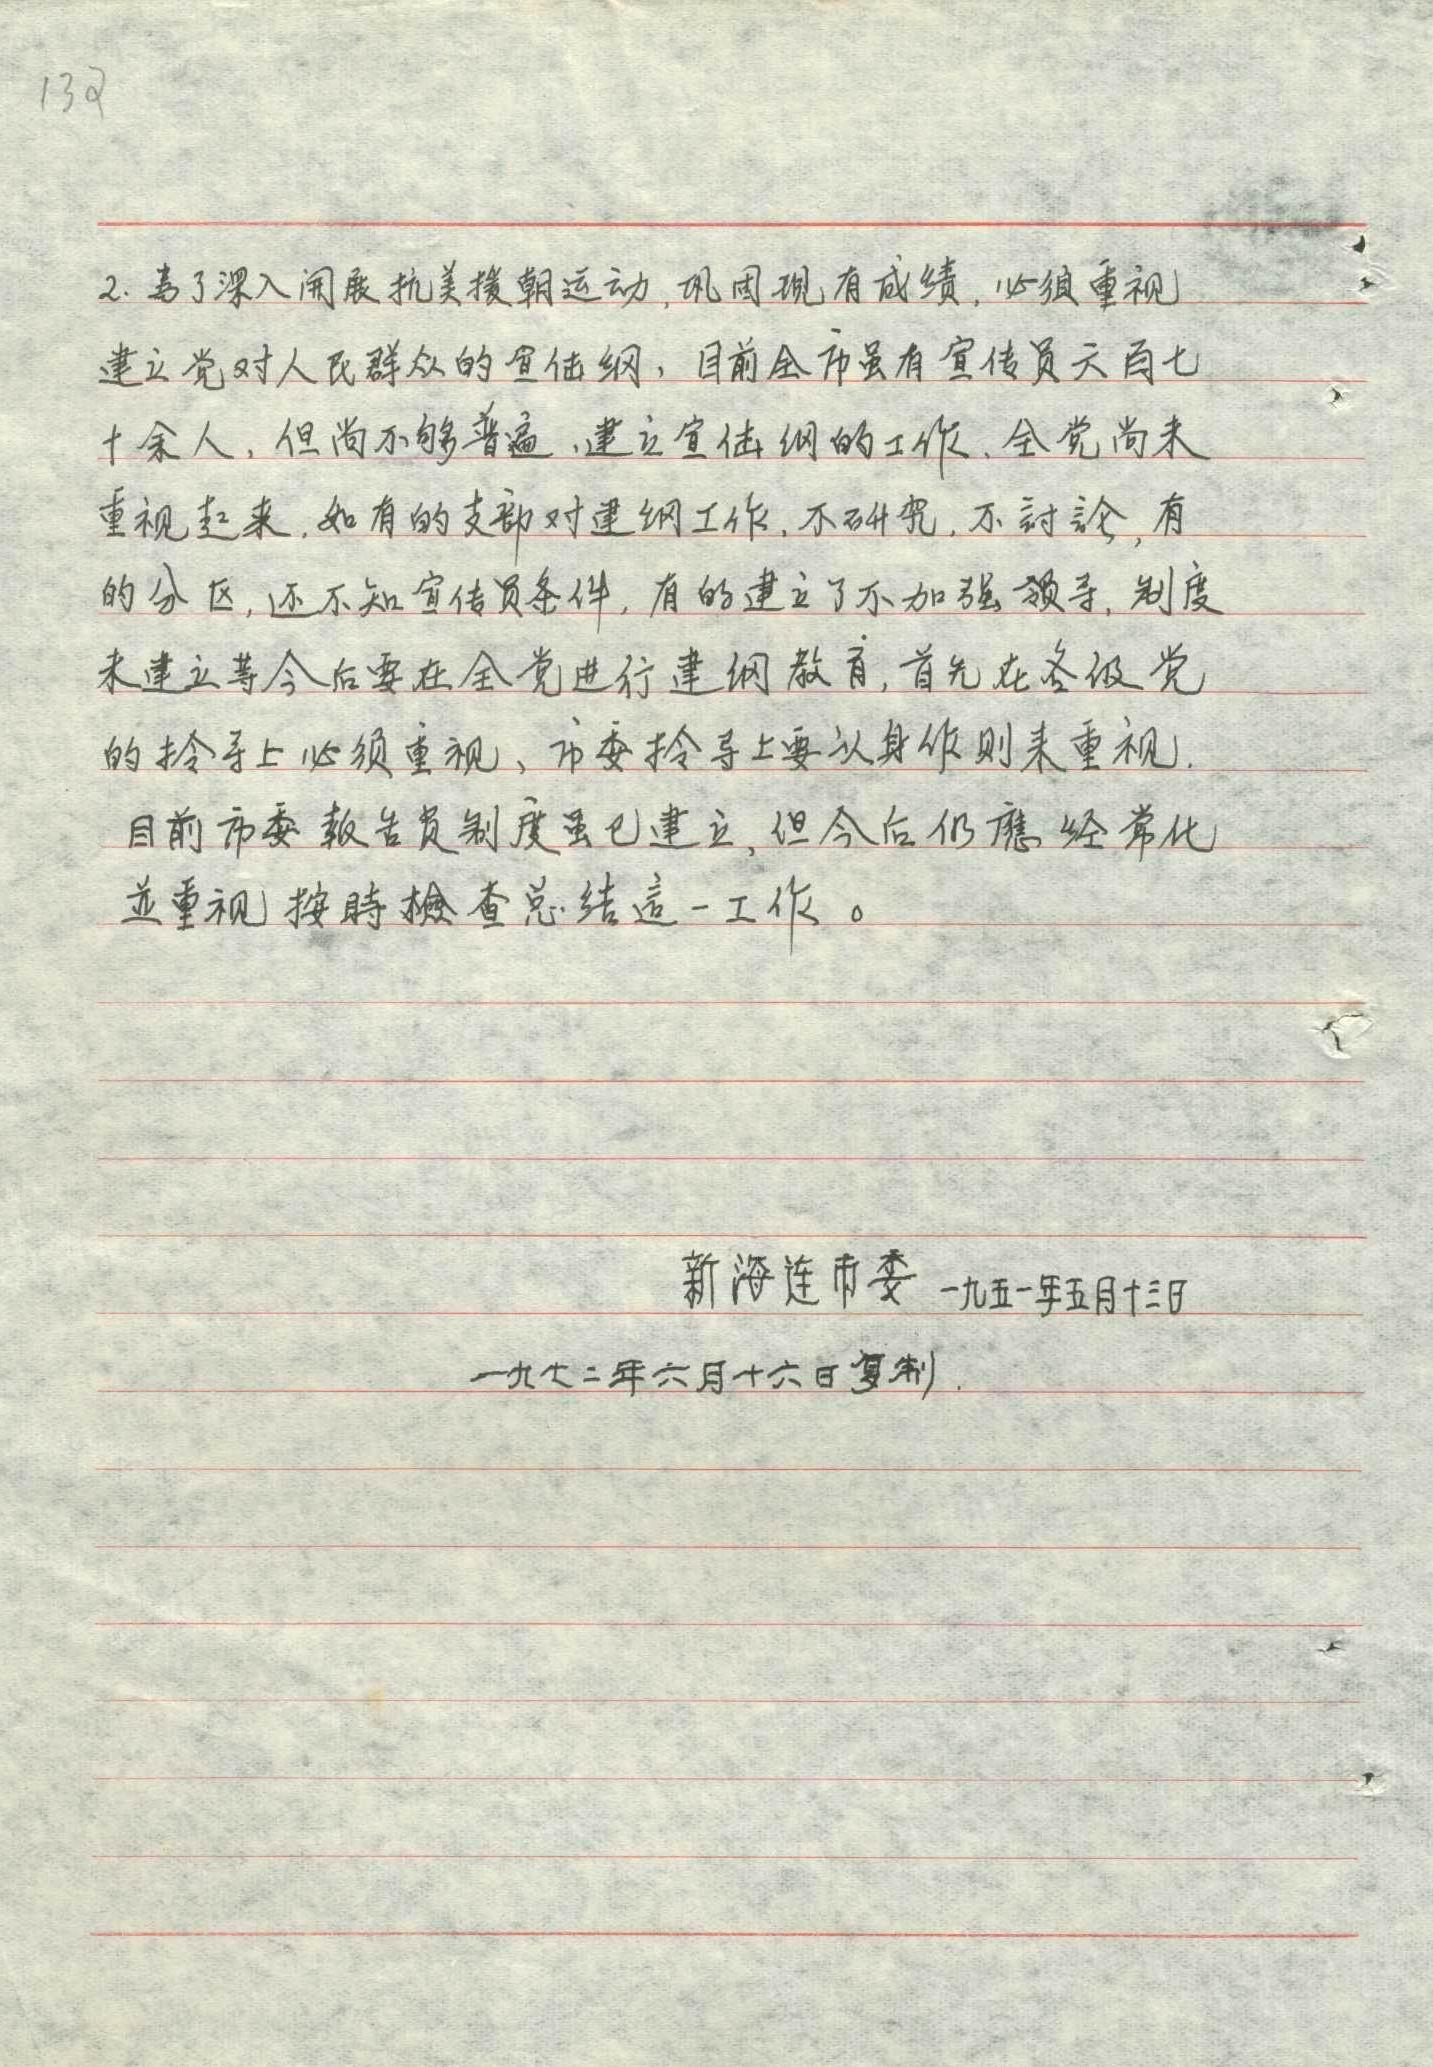 132
2. 为了深入开展抗美援朝运动，巩固现有成绩，必须重视
建立党对人民群众的宣传网，目前全市虽有宣传员六百七
十余人，但尚不够普遍、建立宣传网的工作、全党尚未
重视起来，如有的支部对建网工作，不研究，不討論，有
的分区，还不知宣传员条件，有的建立了不加强领导，制度
未建立等今后要在全党进行建网教育，首先在各级党
的领导上必须重视、市委领导上要以身作则来重视.
目前市委报告员制度虽已建立，但今后仍應经常化
並重视按時檢查总结這一工作。
新海连市委 一九五一年五月十三日
一九七二年六月十六日复制.